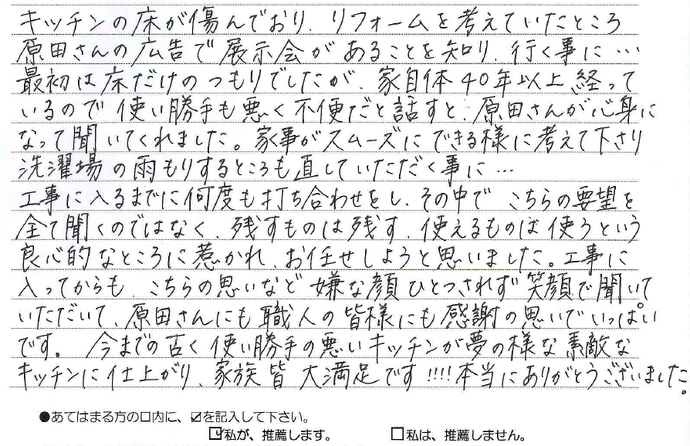 キッチンの床が傷んでおり、リフォームを考えていたところ
原田さんの広告で展示会があることを知り、行く事に…
最初は床だけのつもりでしたが、家自体40年以上経って
いるので使い勝手も悪く不便だと話すと、原田さんが心身に
なって聞いてくれました。家事がスムーズにできる様に考えて下さり
洗濯場の雨もりするところも直していただく事に…
工事に入るまでに何度も打ち合わせをし、その中でこちらの要望を
全て聞くのではなく、残すものは残す、使えるものは使うという
良心的なところに惹かれ、お任せしようと思いました。工事に
入ってからも、こちらの思いなど嫌な顔ひとつされず笑顔で聞いて
いただいて、原田さんにも職人の皆様にも感謝の思いでいっぱい
です。今までの古く使い勝手の悪いキッチンが夢の様な素敵な
キッチンに仕上がり、家族皆大満足です!!!!本当にありがとうございました。
●あてはまる方の口内に、☑を記入して下さい。
☑私が、推薦します。 □私は、推薦しません。